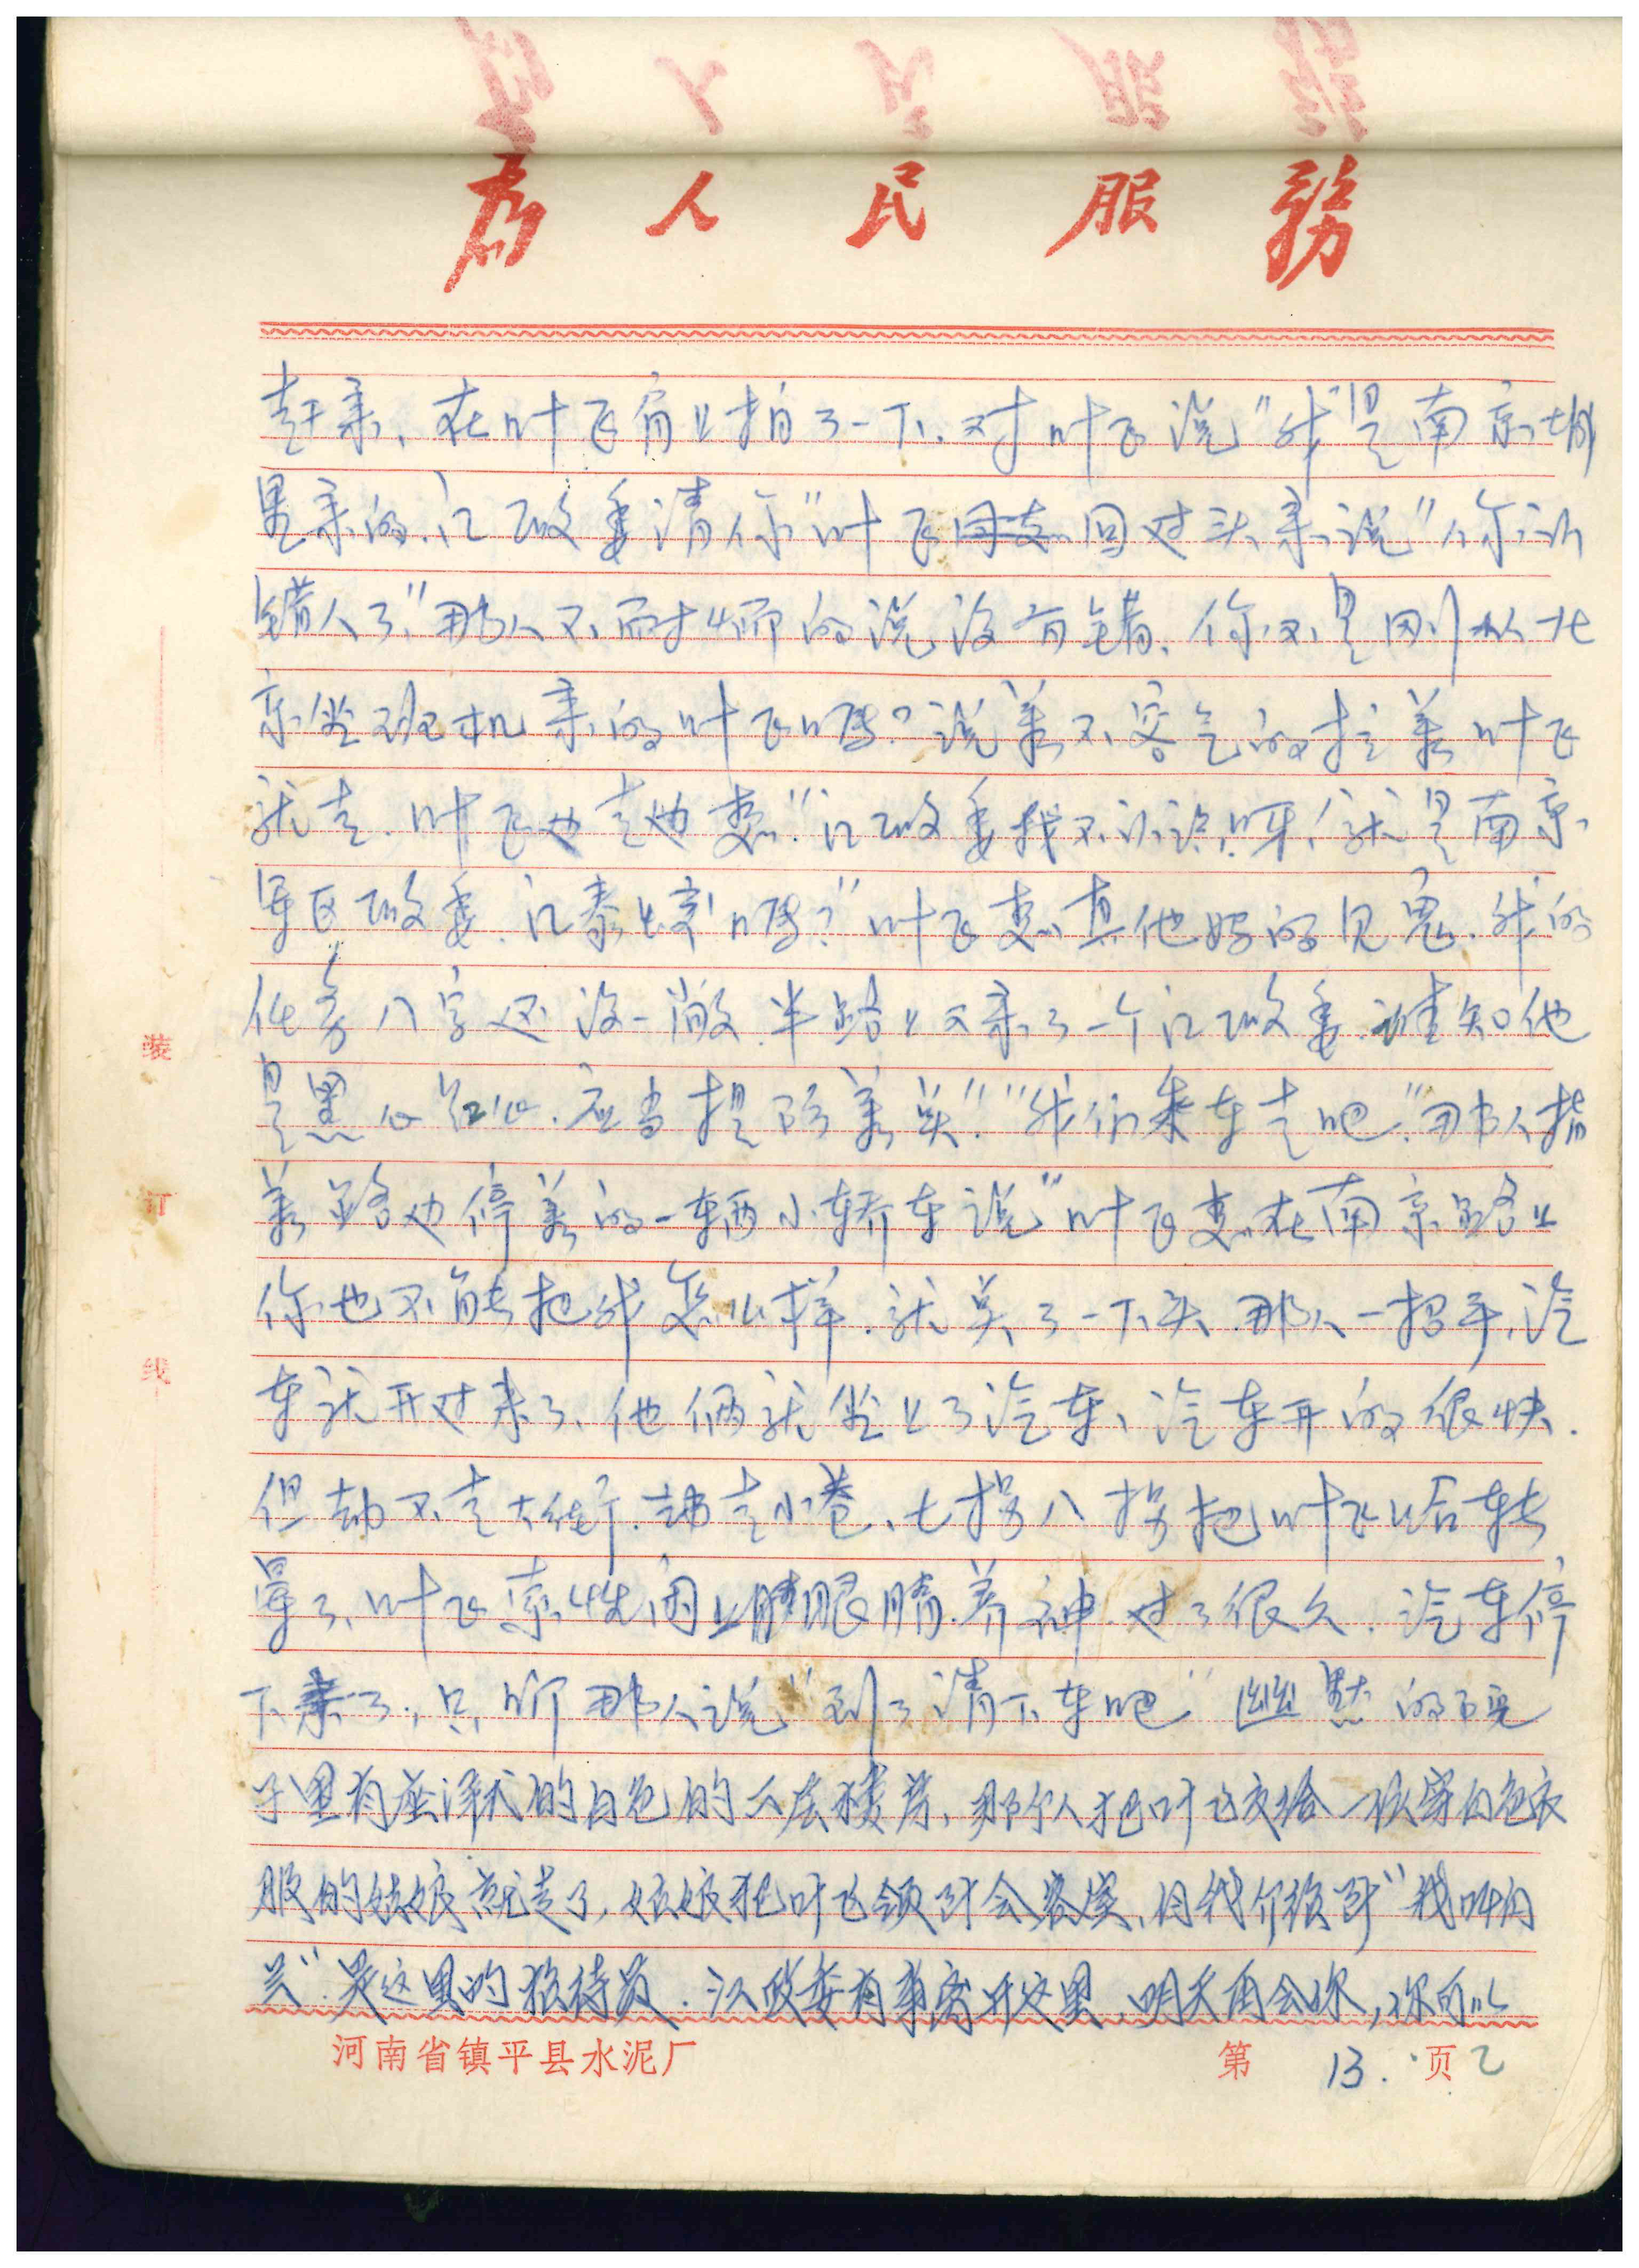 為人民服務
赶来、在叶飞肩上拍了一下、对叶飞说"我"是南京城
里来的、江政委请你"叶飞回过头来说"你认
错人了"那人不耐烦的说没有错、你不是刚从北
京坐班机来的叶飞吗?说着不客气的拉着叶飞
就走.叶飞边走边想"江政委我不认识呀!就是南京
军区政委.江泰安吗?"叶飞想真他妈的见鬼.我的
任务八字还没一撇.半路上又来了一个江政委.谁知他
是黑心红心.应当提防着点""我们乘车走吧"那人指
着路边停着的一辆小轿车说"叶飞想在南京路上
你也不能把我怎么样.就点了一下头.那人一招手,汽
车就开过来了、他俩就坐上了汽车、汽车开的很快.
但却不走大街.专走小巷、七拐八拐把叶飞给转
晕了、叶飞索性闭上眼睛.养神.过了很久.汽车停
下来了,只听那人说"到了请下车吧"幽默的院
子里有座洋式的白色的八层楼房、那个人把叶飞交给一位穿白色衣
服的姑娘就走了,姑娘把叶飞领到会客室、自我介绍到"我叫白
兰"是这里的接待员.江政委有事离开这里,明天再会你,你可以
装
订
线
河南省镇平县水泥厂
第 13. 页 乙